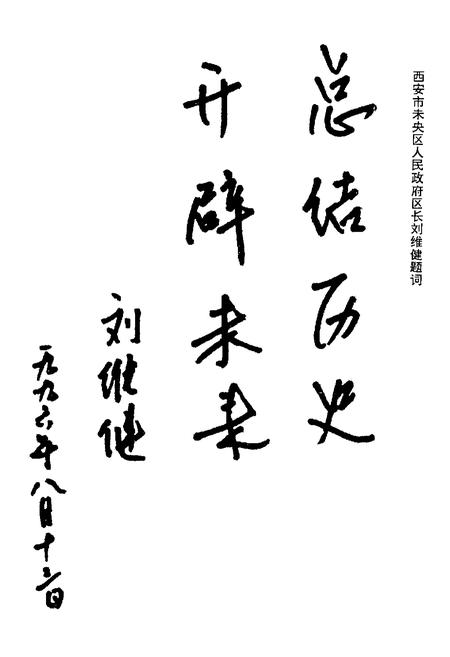 西安市未央区人民政府区长刘维健题词
总结历史
开辟未来
刘维健
一九九六年八月十三日